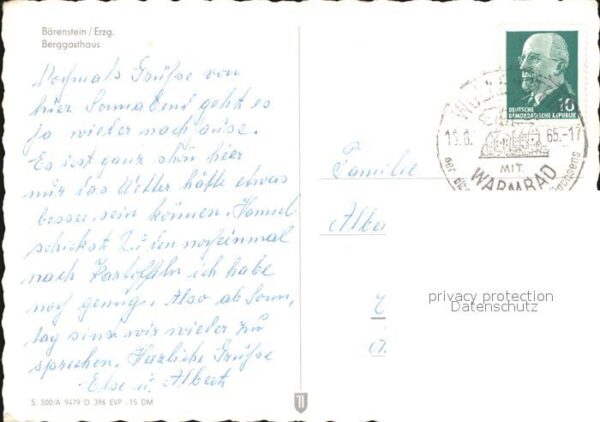 Bärenstein / Erzg.
Berggasthaus
Nochmals Grüße von
hier Sonnabend geht es
ja wieder nach ause.
Es ist ganz schön hier
nur das Wetter hätte etwas
besser sein können.
schickst Du den noch einmal
nach Kartoffeln ich habe
noch genug. Also ab Sonn,
tag sind wir wieder zu
sprechen. Herzliche Grüße
Else u. Albert
S. 500/A 9479 D 396 EVP -.15 DM
DEUTSCHE
DEMOKRATISCHE REPUBLIK
10
65.-17
MIT
WARMBAD
Familie
Alber
privacy protection
Datenschutz